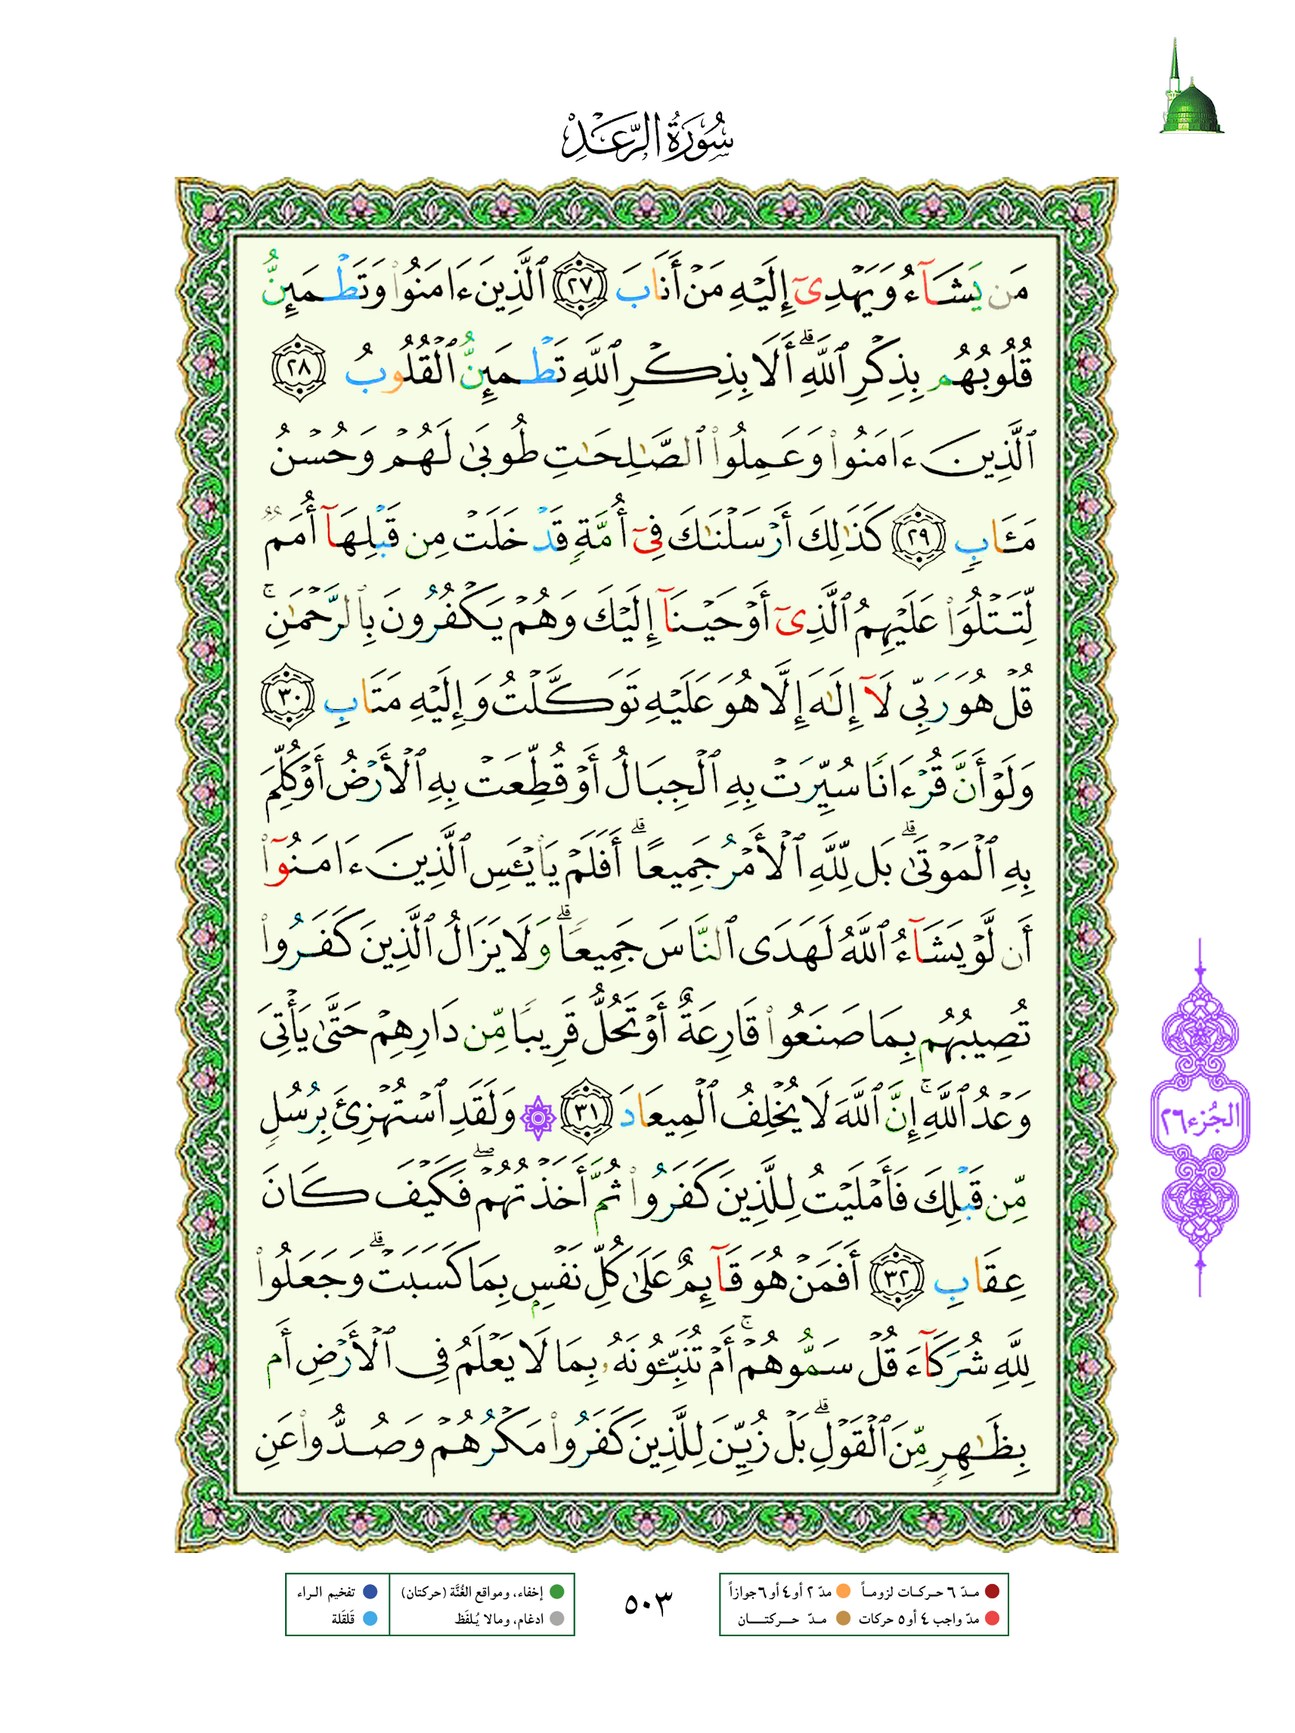 سُورَةُ الرَّعْدِ
مَن يَشَآءُ وَيَهْدِىٓ إِلَيْهِ مَنْ أَنَابَ ﴿٢٧﴾ ٱلَّذِينَ ءَامَنُوا۟ وَتَطْمَئِنُّ
قُلُوبُهُم بِذِكْرِ ٱللَّهِ ۗ أَلَا بِذِكْرِ ٱللَّهِ تَطْمَئِنُّ ٱلْقُلُوبُ ﴿٢٨﴾
ٱلَّذِينَ ءَامَنُوا۟ وَعَمِلُوا۟ ٱلصَّـٰلِحَـٰتِ طُوبَىٰ لَهُمْ وَحُسْنُ
مَـَٔابٍ ﴿٢٩﴾ كَذَٰلِكَ أَرْسَلْنَـٰكَ فِىٓ أُمَّةٍ قَدْ خَلَتْ مِن قَبْلِهَآ أُمَمٌ
لِّتَتْلُوَا۟ عَلَيْهِمُ ٱلَّذِىٓ أَوْحَيْنَآ إِلَيْكَ وَهُمْ يَكْفُرُونَ بِٱلرَّحْمَـٰنِ ۚ
قُلْ هُوَ رَبِّى لَآ إِلَـٰهَ إِلَّا هُوَ عَلَيْهِ تَوَكَّلْتُ وَإِلَيْهِ مَتَابِ ﴿٣٠﴾
وَلَوْ أَنَّ قُرْءَانًا سُيِّرَتْ بِهِ ٱلْجِبَالُ أَوْ قُطِّعَتْ بِهِ ٱلْأَرْضُ أَوْ كُلِّمَ
بِهِ ٱلْمَوْتَىٰ ۗ بَل لِّلَّهِ ٱلْأَمْرُ جَمِيعًا ۗ أَفَلَمْ يَا۟يْـَٔسِ ٱلَّذِينَ ءَامَنُوٓا۟
أَن لَّوْ يَشَآءُ ٱللَّهُ لَهَدَى ٱلنَّاسَ جَمِيعًا ۗ وَلَا يَزَالُ ٱلَّذِينَ كَفَرُوا۟
تُصِيبُهُم بِمَا صَنَعُوا۟ قَارِعَةٌ أَوْ تَحُلُّ قَرِيبًا مِّن دَارِهِمْ حَتَّىٰ يَأْتِىَ
وَعْدُ ٱللَّهِ ۚ إِنَّ ٱللَّهَ لَا يُخْلِفُ ٱلْمِيعَادَ ﴿٣١﴾ ۞ وَلَقَدِ ٱسْتُهْزِئَ بِرُسُلٍ
مِّن قَبْلِكَ فَأَمْلَيْتُ لِلَّذِينَ كَفَرُوا۟ ثُمَّ أَخَذْتُهُمْ ۖ فَكَيْفَ كَانَ
عِقَابِ ﴿٣٢﴾ أَفَمَنْ هُوَ قَآئِمٌ عَلَىٰ كُلِّ نَفْسٍۭ بِمَا كَسَبَتْ ۗ وَجَعَلُوا۟
لِلَّهِ شُرَكَآءَ قُلْ سَمُّوهُمْ ۚ أَمْ تُنَبِّـُٔونَهُۥ بِمَا لَا يَعْلَمُ فِى ٱلْأَرْضِ أَم
بِظَـٰهِرٍ مِّنَ ٱلْقَوْلِ ۗ بَلْ زُيِّنَ لِلَّذِينَ كَفَرُوا۟ مَكْرُهُمْ وَصُدُّوا۟ عَنِ
الجُزء ٢٦
مدّ ٦ حركات لزوماً
مدّ ٢ أو ٤ أو ٦ جوازاً
مدّ واجب ٤ أو ٥ حركات
مدّ حركتان
٥٠٣
إخفاء، ومواقع الغُنَّة (حركتان)
تفخيم الراء
ادغام، ومالا يُلفَظ
قَلقَلة